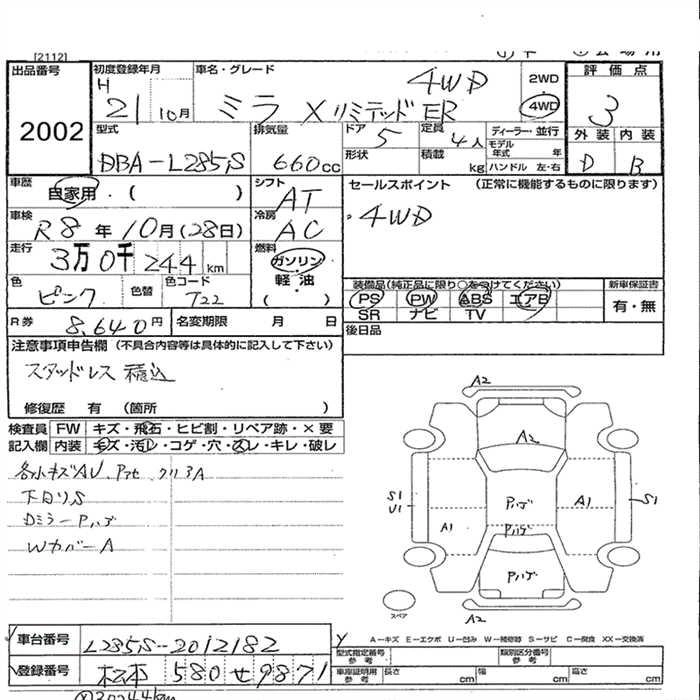 [2112]
出品番号 2002
初度登録年月 H 21 10月
車名・グレード 4WD
ミラ XリミテッドER
2WD
4WD
評価点 3
外装 内装
D B
型式 DBA-L285S
排気量 660cc
ドア 5
定員 4人
形状
積載 kg
ディーラー・並行
モデル年式 年
ハンドル 左・右
車歴 自家用・( )
シフト AT
車検 R8年10月(28日)
冷房 AC
走行 3万0千244km
燃料 ガソリン・軽油・( )
色 ピンク
色替
色コード T22
セールスポイント (正常に機能するものに限ります)
・4WD
装備品(純正品に限り○をつけてください)
PS PW ABS エアB
SR ナビ TV
新車保証書
有・無
後日品
R券 8,640円
名変期限 月 日
注意事項申告欄 (不具合内容等は具体的に記入して下さい)
スタッドレス積込
修復歴 有 (箇所 )
検査員記入欄
FW キズ・飛石・ヒビ割・リペア跡・×要
内装 キズ・汚レ・コゲ・穴・スレ・キレ・破レ
各小キズAU
下回りS
DミラーPハゲ
WカバーA
A2
A2
Pハゲ
Pハゲ
Pハゲ
A1
A1
S1
U1
S1
A2
スペア
A-キズ E-エクボ U-凹み W-補修跡 S-サビ C-腐食 XX-交換済
車台番号 L285S-2012182
登録番号 松本 580 せ 9871
型式指定番号 参考
類別区分番号 参考
車庫証明用 参考
長さ cm
幅 cm
高さ cm